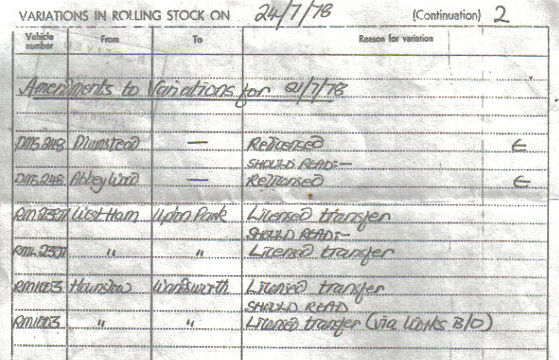 VARIATIONS IN ROLLING STOCK ON 24/7/78 (Continuation) 2
Vehicle number From To Reason for variation
Amendments to Variations for 21/7/78
DMS.248 Plumstead — Relicensed
SHOULD READ:—
DMS.248 Abbey Wood — Relicensed
RM.2307 West Ham Upton Park Licensed transfer
SHOULD READ:—
RML.2307 " " Licensed transfer
RM1003 Hounslow Wandsworth Licensed transfer
SHOULD READ
RM1003 " " Licensed transfer (via Works B/O)